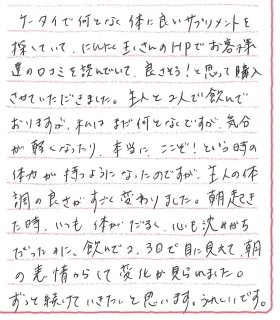 ケータイで何となく体に良いサプリメントを
探していて、にんにく玉ごさんのHPでお客様
達の口コミを読んでいて、良さそう!と思って購入
させていただきました。主人と2人で飲んで
おりますが、私は まだ何となくですが、気分
が軽くなったり、本当に、ここぞ!という時の
体力が持つようになったのですが、主人の体
調の良さがすごく変わりました。朝起き
た時、いつも体がだるく、心も沈みがち
だったのに、飲んで2、3日で目に見えて、朝
の表情からして変化が見られました。
ずっと続けていきたいと思います。うれしいです。